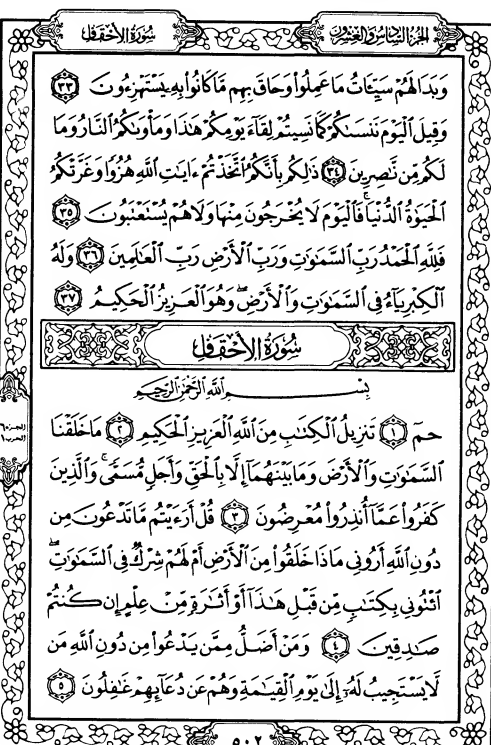 سُورَةُ الأَحْقَافِ الجُزْءُ السَّادِسُ وَالعِشْرُونَ
وَبَدَا لَهُمْ سَيِّـَٔاتُ مَا عَمِلُوا۟ وَحَاقَ بِهِم مَّا كَانُوا۟ بِهِۦ يَسْتَهْزِءُونَ ٣٣
وَقِيلَ ٱلْيَوْمَ نَنسَىٰكُمْ كَمَا نَسِيتُمْ لِقَآءَ يَوْمِكُمْ هَٰذَا وَمَأْوَىٰكُمُ ٱلنَّارُ وَمَا
لَكُم مِّن نَّٰصِرِينَ ٣٤ ذَٰلِكُم بِأَنَّكُمُ ٱتَّخَذْتُمْ ءَايَٰتِ ٱللَّهِ هُزُوًا وَغَرَّتْكُمُ
ٱلْحَيَوٰةُ ٱلدُّنْيَا ۚ فَٱلْيَوْمَ لَا يُخْرَجُونَ مِنْهَا وَلَا هُمْ يُسْتَعْتَبُونَ ٣٥
فَلِلَّهِ ٱلْحَمْدُ رَبِّ ٱلسَّمَٰوَٰتِ وَرَبِّ ٱلْأَرْضِ رَبِّ ٱلْعَٰلَمِينَ ٣٦ وَلَهُ
ٱلْكِبْرِيَآءُ فِى ٱلسَّمَٰوَٰتِ وَٱلْأَرْضِ ۖ وَهُوَ ٱلْعَزِيزُ ٱلْحَكِيمُ ٣٧
سُورَةُ الأَحْقَافِ
بِسْمِ ٱللَّهِ ٱلرَّحْمَٰنِ ٱلرَّحِيمِ
حمٓ ١ تَنزِيلُ ٱلْكِتَٰبِ مِنَ ٱللَّهِ ٱلْعَزِيزِ ٱلْحَكِيمِ ٢ مَا خَلَقْنَا
ٱلسَّمَٰوَٰتِ وَٱلْأَرْضَ وَمَا بَيْنَهُمَآ إِلَّا بِٱلْحَقِّ وَأَجَلٍ مُّسَمًّى ۚ وَٱلَّذِينَ
كَفَرُوا۟ عَمَّآ أُنذِرُوا۟ مُعْرِضُونَ ٣ قُلْ أَرَءَيْتُم مَّا تَدْعُونَ مِن
دُونِ ٱللَّهِ أَرُونِى مَاذَا خَلَقُوا۟ مِنَ ٱلْأَرْضِ أَمْ لَهُمْ شِرْكٌ فِى ٱلسَّمَٰوَٰتِ ۖ
ٱئْتُونِى بِكِتَٰبٍ مِّن قَبْلِ هَٰذَآ أَوْ أَثَٰرَةٍ مِّنْ عِلْمٍ إِن كُنتُمْ
صَٰدِقِينَ ٤ وَمَنْ أَضَلُّ مِمَّن يَدْعُوا۟ مِن دُونِ ٱللَّهِ مَن
لَّا يَسْتَجِيبُ لَهُۥٓ إِلَىٰ يَوْمِ ٱلْقِيَٰمَةِ وَهُمْ عَن دُعَآئِهِمْ غَٰفِلُونَ ٥
٥٠٢